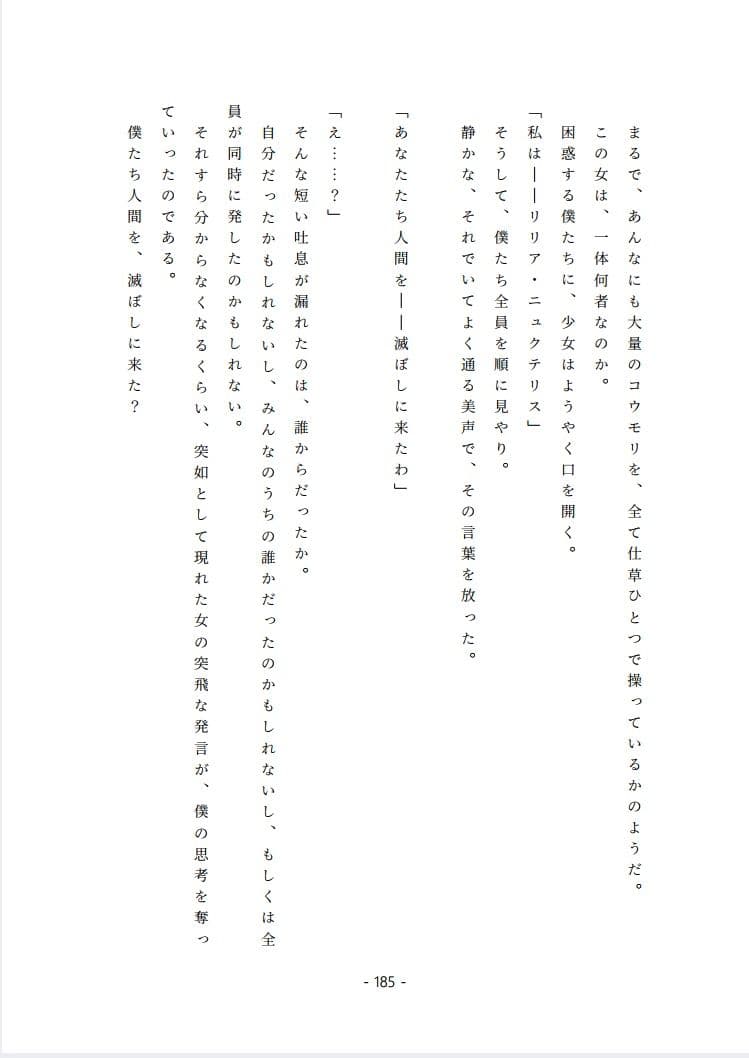 まるで、あんなにも大量のコウモリを、全て仕草ひとつで操っているかのようだ。
　この女は、一体何者なのか。
　困惑する僕たちに、少女はようやく口を開く。
「私は――リリア・ニュクテリス」
　そうして、僕たち全員を順に見やり。
　静かな、それでいてよく通る美声で、その言葉を放った。
「あなたたち人間を――滅ぼしに来たわ」
「え……？」
　そんな短い吐息が漏れたのは、誰からだったか。
　自分だったかもしれないし、みんなのうちの誰かだったのかもしれないし、もしくは全
員が同時に発したのかもしれない。
　それすら分からなくなるくらい、突如として現れた女の突飛な発言が、僕の思考を奪っ
ていったのである。
　僕たち人間を、滅ぼしに来た？
- 185 -